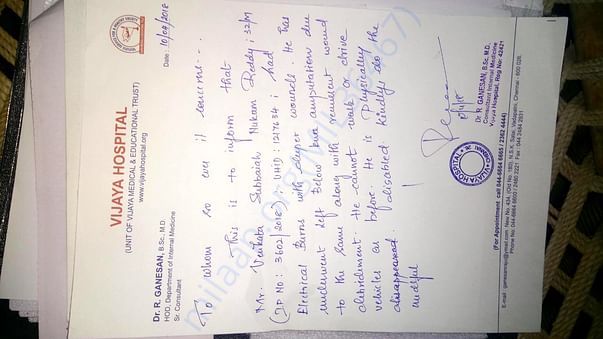 VIJAYA HOSPITAL
(UNIT OF VIJAYA MEDICAL & EDUCATIONAL TRUST)
www.vijayahospital.org
Dr. R. GANESAN, B.Sc., M.D.
HOD, Department of Internal Medicine
Sr. Consultant
Date: 10/04/2018
To whom so ever it concerns...
This is to inform that
Mr. Venkata Subbaiah Nukam Reddy, 32/M
(IP NO: 3602/2018) (UHID: 1217634) had
Electrical Burns with deeper wounds. He has
underwent left Below knee amputation due
to the same along with resultent wound
debridement. He cannot walk or drive
vehicles as before. He is physically
disabled kindly do the
needful
Dr R. GANESAN, B.Sc. M.D.
Consultant Internal Medicine
Vijaya Hospital, Reg No: 42421
VIJAYA HOSPITAL
For Appointment call 044-6664 6665 / 2362 4444)
milaap.org